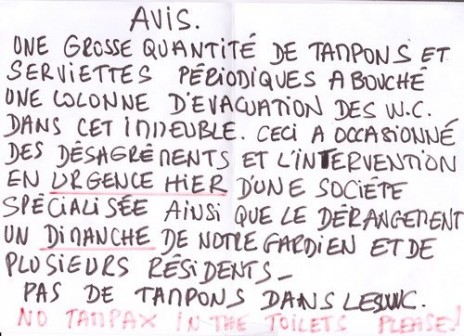 AVIS.
UNE GROSSE QUANTITÉ DE TAMPONS ET
SERVIETTES PÉRIODIQUES A BOUCHÉ
UNE COLONNE D'EVACUATION DES W.C.
DANS CET IMMEUBLE. CECI A OCCASIONNÉ
DES DÉSAGRÉMENTS ET L'INTERVENTION
EN URGENCE HIER D'UNE SOCIÉTÉ
SPÉCIALISÉE AINSI QUE LE DÉRANGEMENT
UN DIMANCHE DE NOTRE GARDIEN ET DE
PLUSIEURS RÉSIDENTS_
PAS DE TAMPONS DANS LES WC.
NO TAMPAX IN THE TOILETS PLEASE!